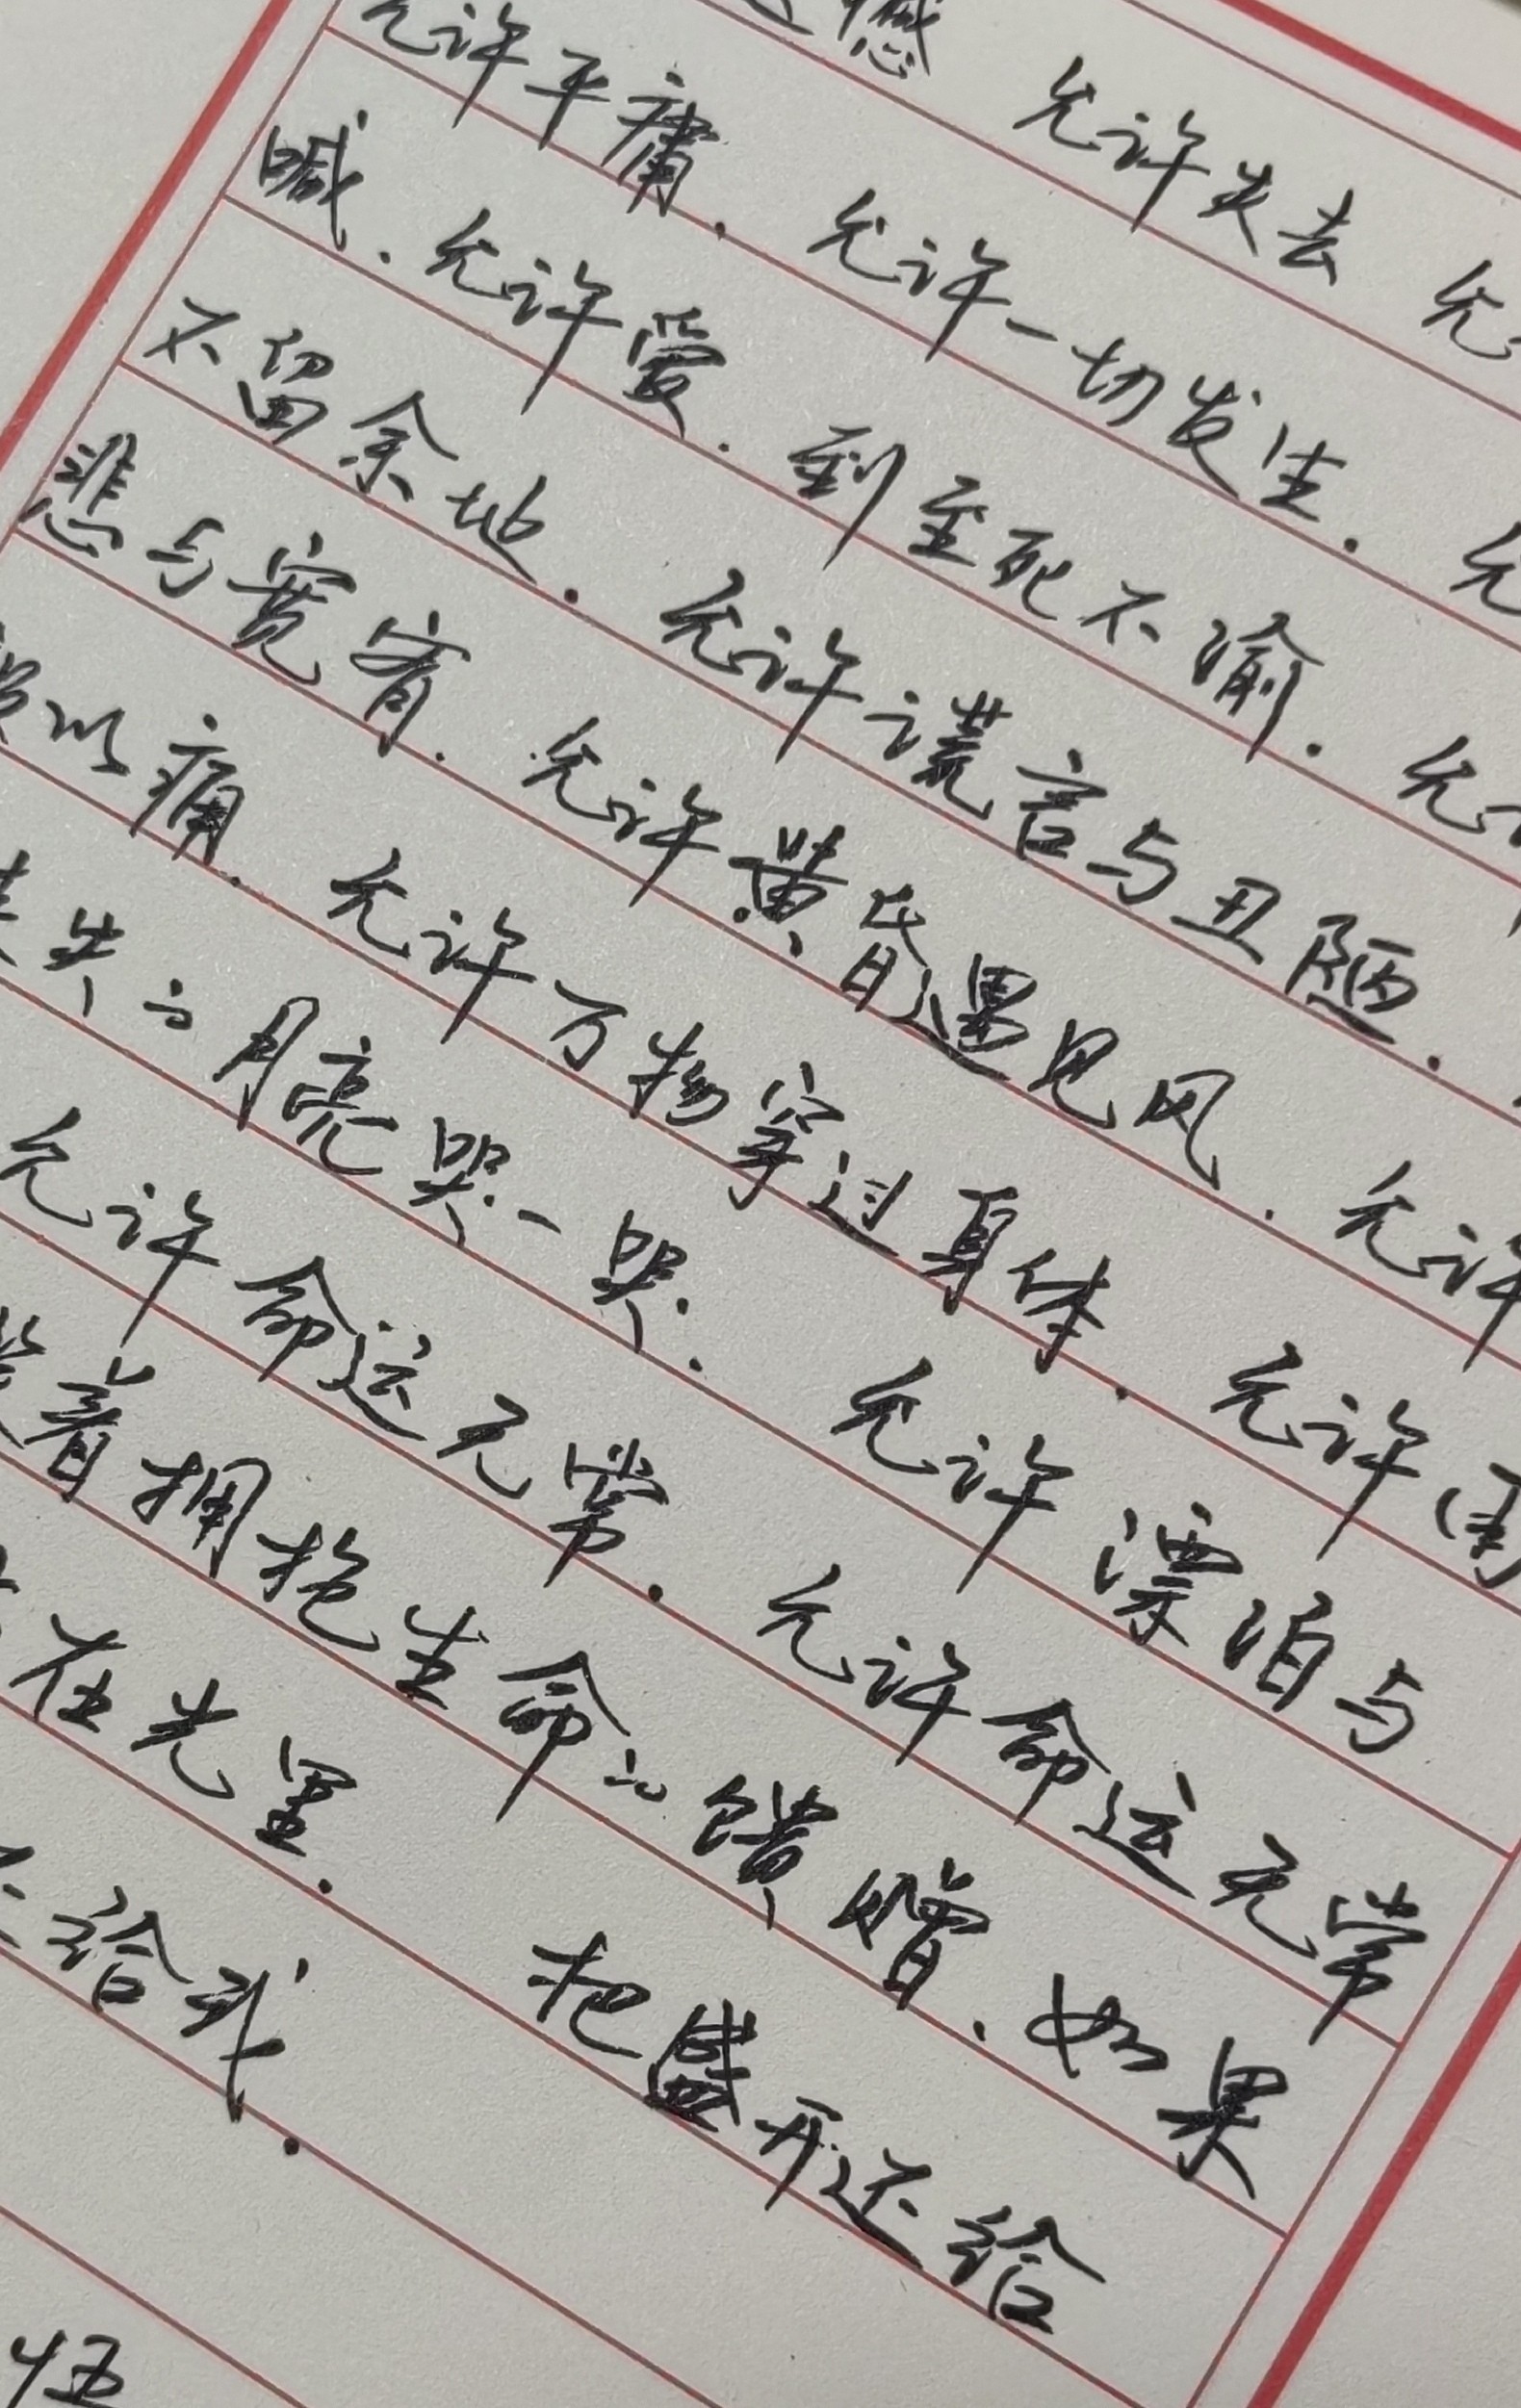 憾 允许失去 允
允许平庸. 允许一切发生. 允
喊. 允许爱. 到至死不渝. 允
不留余地. 允许谎言与丑陋.
悲与宽宥. 允许黄昏遇见风. 允许
以痛. 允许万物穿过身体. 允许
失的月亮哭一哭. 允许漂泊与
允许命运无常. 允许命运无常
着拥抱生命的馈赠. 如果
在光里. 把盛开还给
给我.